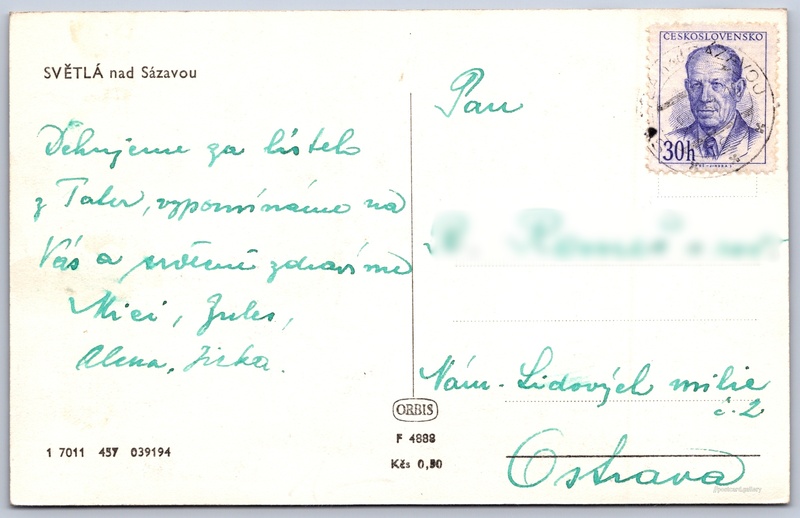 SVĚTLÁ nad Sázavou
Děkujeme za lístek
z Tater, vzpomínáme na
Vás a srdečně zdravíme
Mici, Jules,
Alena, Jirka.
1 7011 457 039194
ORBIS
F 4888
Kčs 0,50
ČESKOSLOVENSKO
30h
SÁZAVOU
Pan
Nám. Lidových milic
č. 2
Ostrava